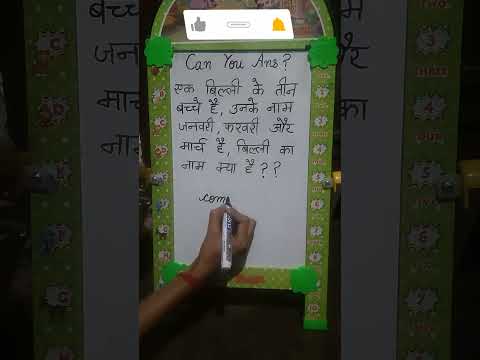 Can You Ans?
एक बिल्ली के तीन
बच्चे है, उनके नाम
जनवरी, फरवरी और
मार्च है, बिल्ली का
नाम क्या है??
com